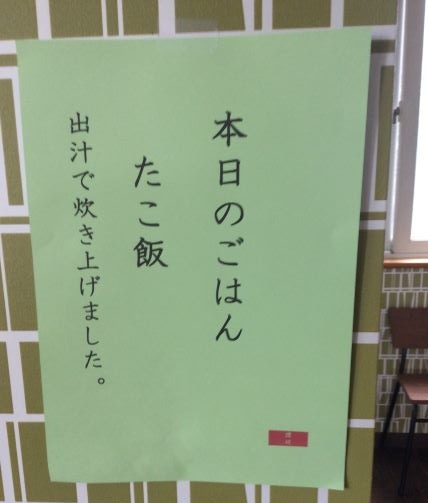 本日のごはん
たこ飯
出汁で炊き上げました。